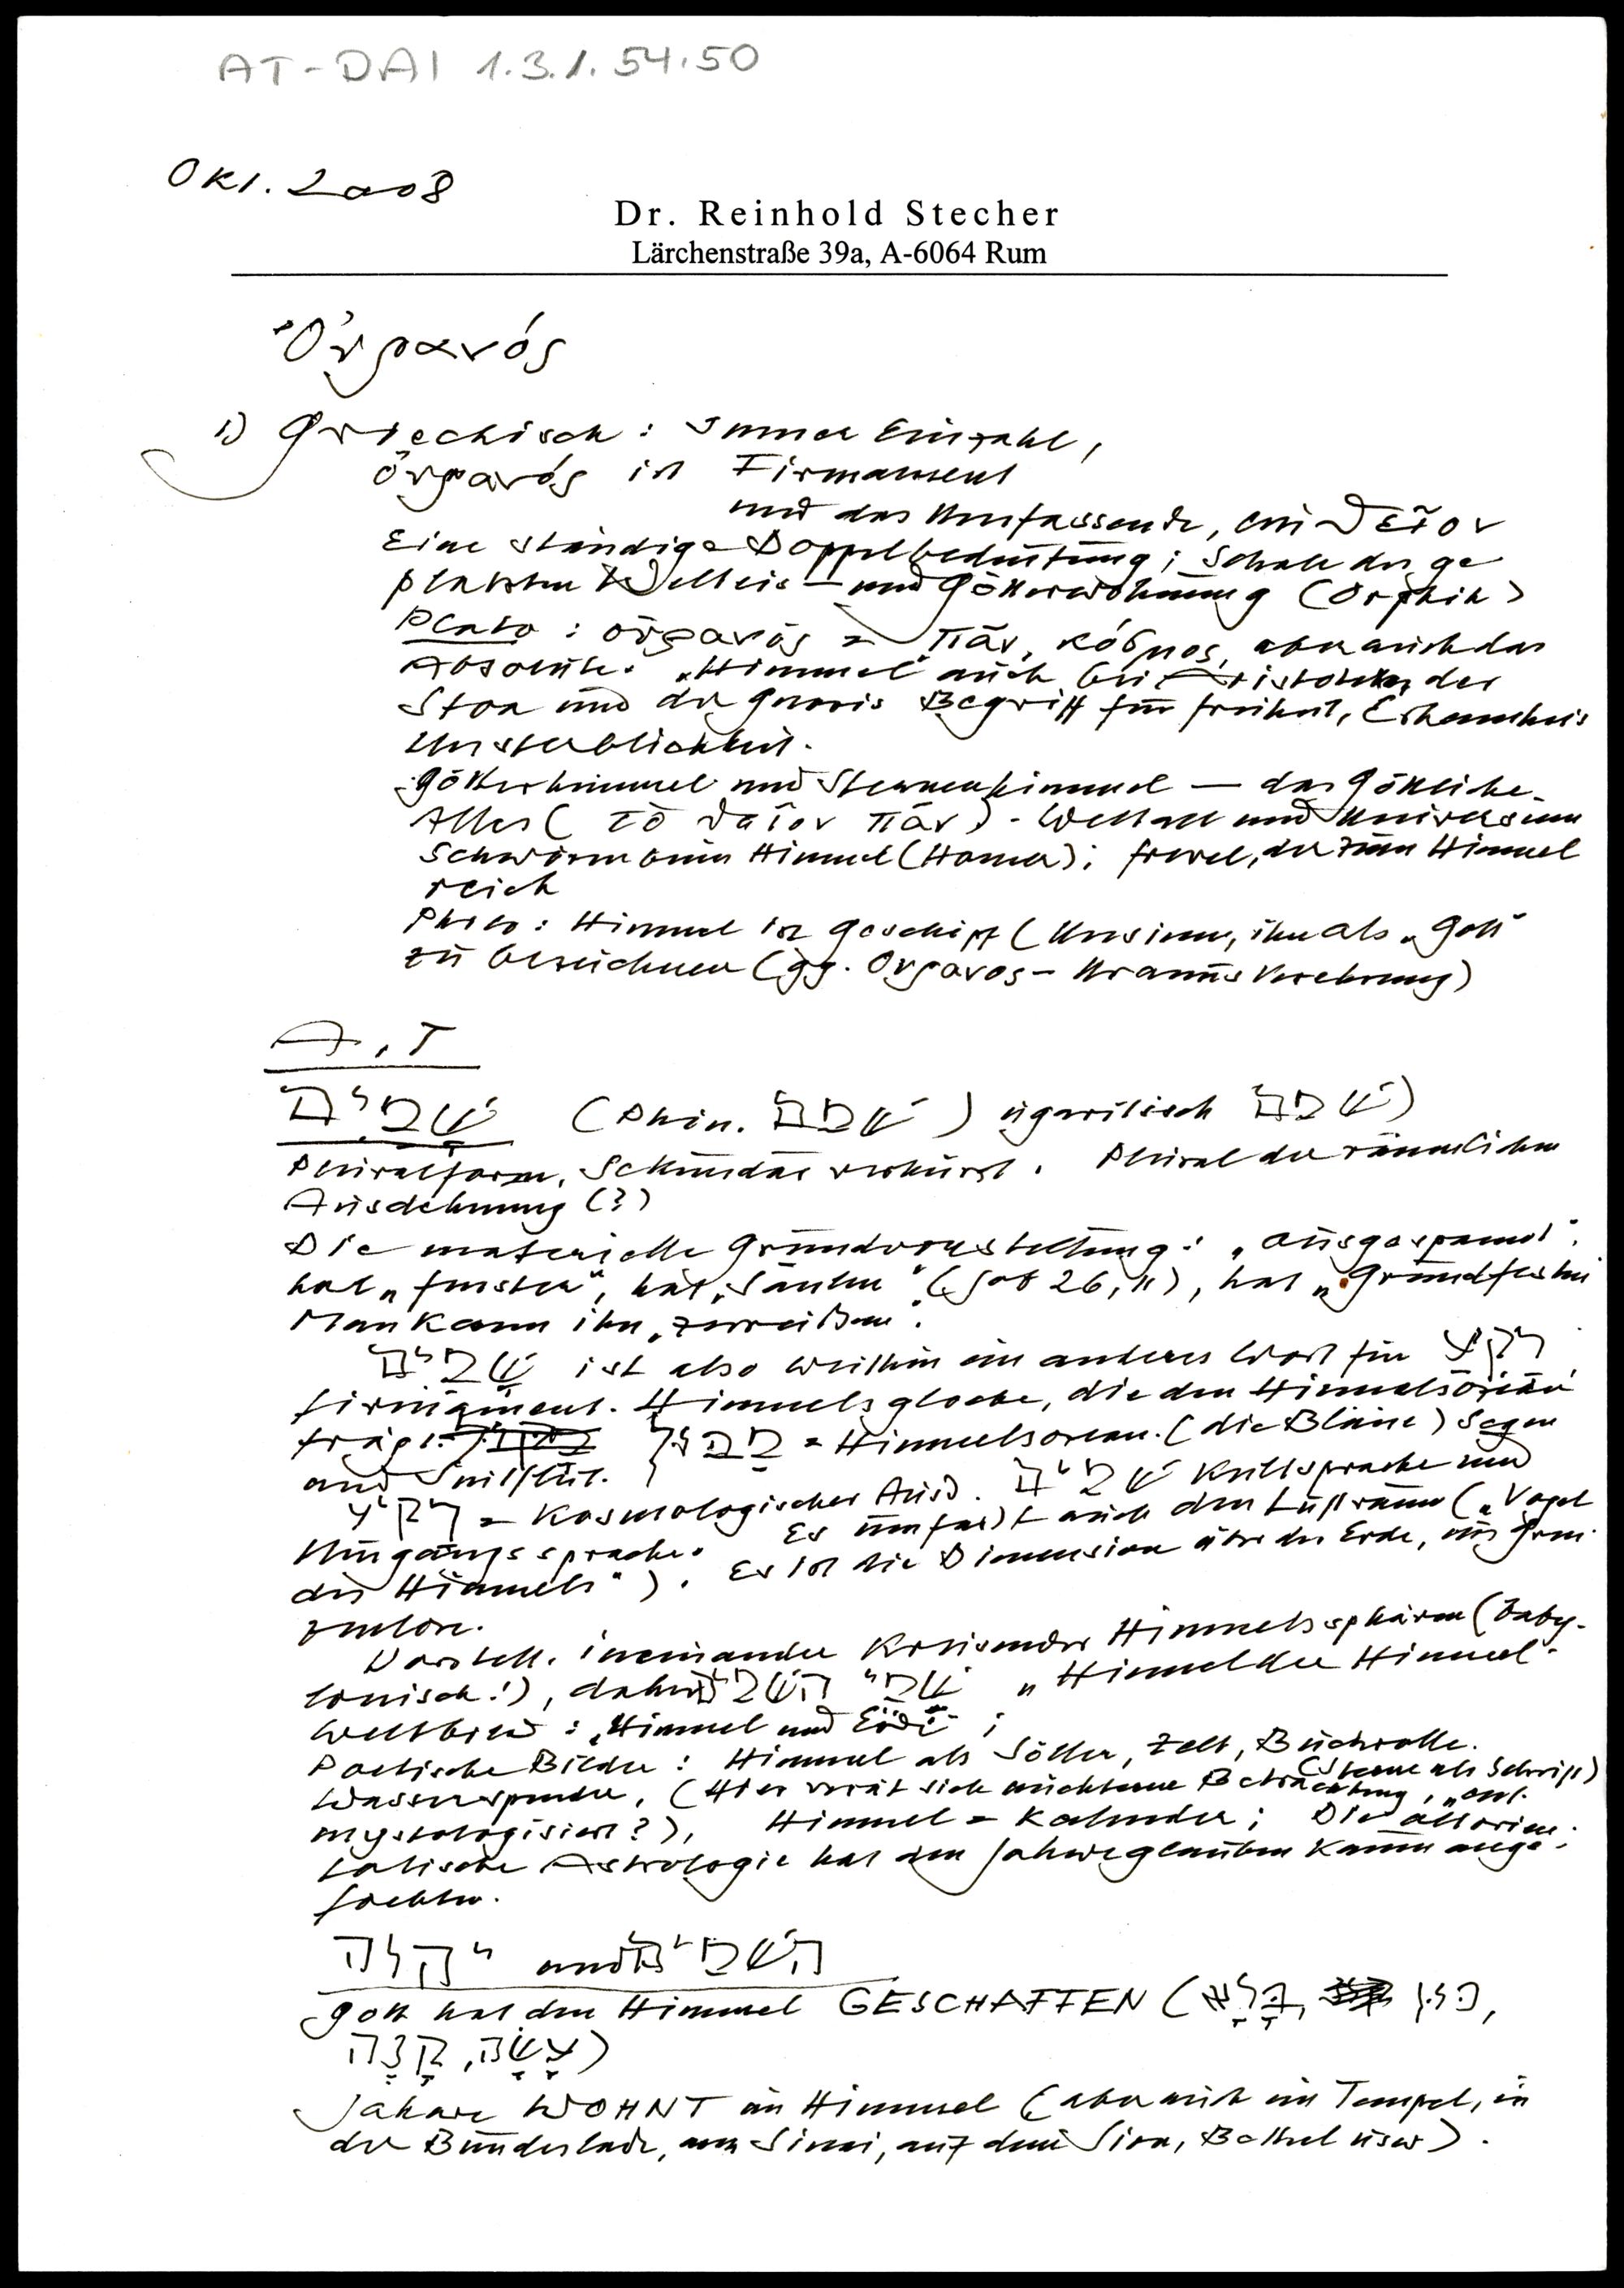 AT-DAI 1.3.1.54.50
Okt. 2008
Dr. Reinhold Stecher
Lärchenstraße 39a, A-6064 Rum
Οὐρανός
1) Griechisch: Immer Einzahl,
οὐρανός ist Firmament
und das Umfassende, ein θεῖον
Eine ständige Doppelbedeutung; Schale des ge
platzten Welteis – und Götterwohnung (Orphik)
Plato: οὐρανός = πᾶν, κόσμος, aber auch das
Absolute. „Himmel" auch bei Aristoteles der
Stoa und der Gnosis Begriff für Freiheit, Erhabenheit
Unsterblichkeit.
Götterhimmel und Sternenhimmel – das Göttliche
Alles ( τὸ θεῖον πᾶν ) - Weltall und Universum
Schwören beim Himmel (Homer); Frevel, der zum Himmel
reicht
Philo: Himmel ist Geschöpf (Unsinn, ihn als „Gott"
zu bezeichnen (gg. Ouranos - Uranus Verehrung)
A.T
שָׁמַיִם (Phön. שׁמם ) ugaritisch שׁמם)
Pluralform, Sekundär verkürzt. Plural der räumlichen
Ausdehnung (?)
Die materielle Grundvorstellung: „ausgespannt",
hat „Fenster", hat „Säulen" (Job 26,11), hat „Grundfesten
Man kann ihn „zerreißen".
שָׁמַיִם ist also weithin ein anderes Wort für רקיע
Firmament. Himmelsglocke, die den Himmelsozean
trägt. מַבּוּל = Himmelsozean. (die Bläue) Segen
und Sintflut.
רקיע = Kosmologischer Ausd. שׁמים Kultsprache und
Umgangssprache. Es umfasst auch den Luftraum („Vögel
des Himmels"). Es ist die Dimension über der Erde, ins Gren
zenlose.
Vorstell. ineinander kreisender Himmelssphären (baby-
lonisch!), daher שׁמי השׁמים „Himmel der Himmel"
Weltbild: „Himmel und Erde" ;
Poetische Bilder: Himmel als Söller, Zelt, Buchrolle.
(Sterne als Schrift)
Wasserspender, (Hier verrät sich nüchterne Betrachtung, „ent-
mythologisiert?), Himmel = Kalender; Die altorien-
talische Astrologie hat den Jahweglauben kaum ange-
fochten.
יהוה und השׁמים
Gott hat den Himmel GESCHAFFEN (בָּרָא, כּוּן,
עָשָׂה, קָנָה)
Jahwe WOHNT im Himmel (aber auch im Tempel, in
der Bundeslade, am Sinai, auf dem Sion, Bethel usw).